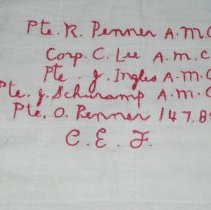 Pte. R. Penner A.M.C
Corp. C. Lee A.M.C
Pte. J. Ingles A.M.C
Pte. J. Schuramp A.M.C
Pte. O. Renner 147.8
C. E. F.